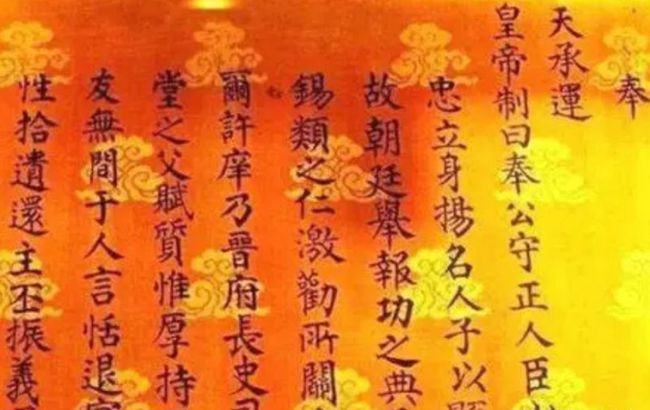 奉
天承運
皇帝制曰奉公守正人臣
忠立身揚名人子以
故朝廷舉報功之典
錫類之仁激勸所關
爾許庠乃晉府長史
堂之父賦質惟厚持
友無間于人言恬退
性拾遺還主丕振義